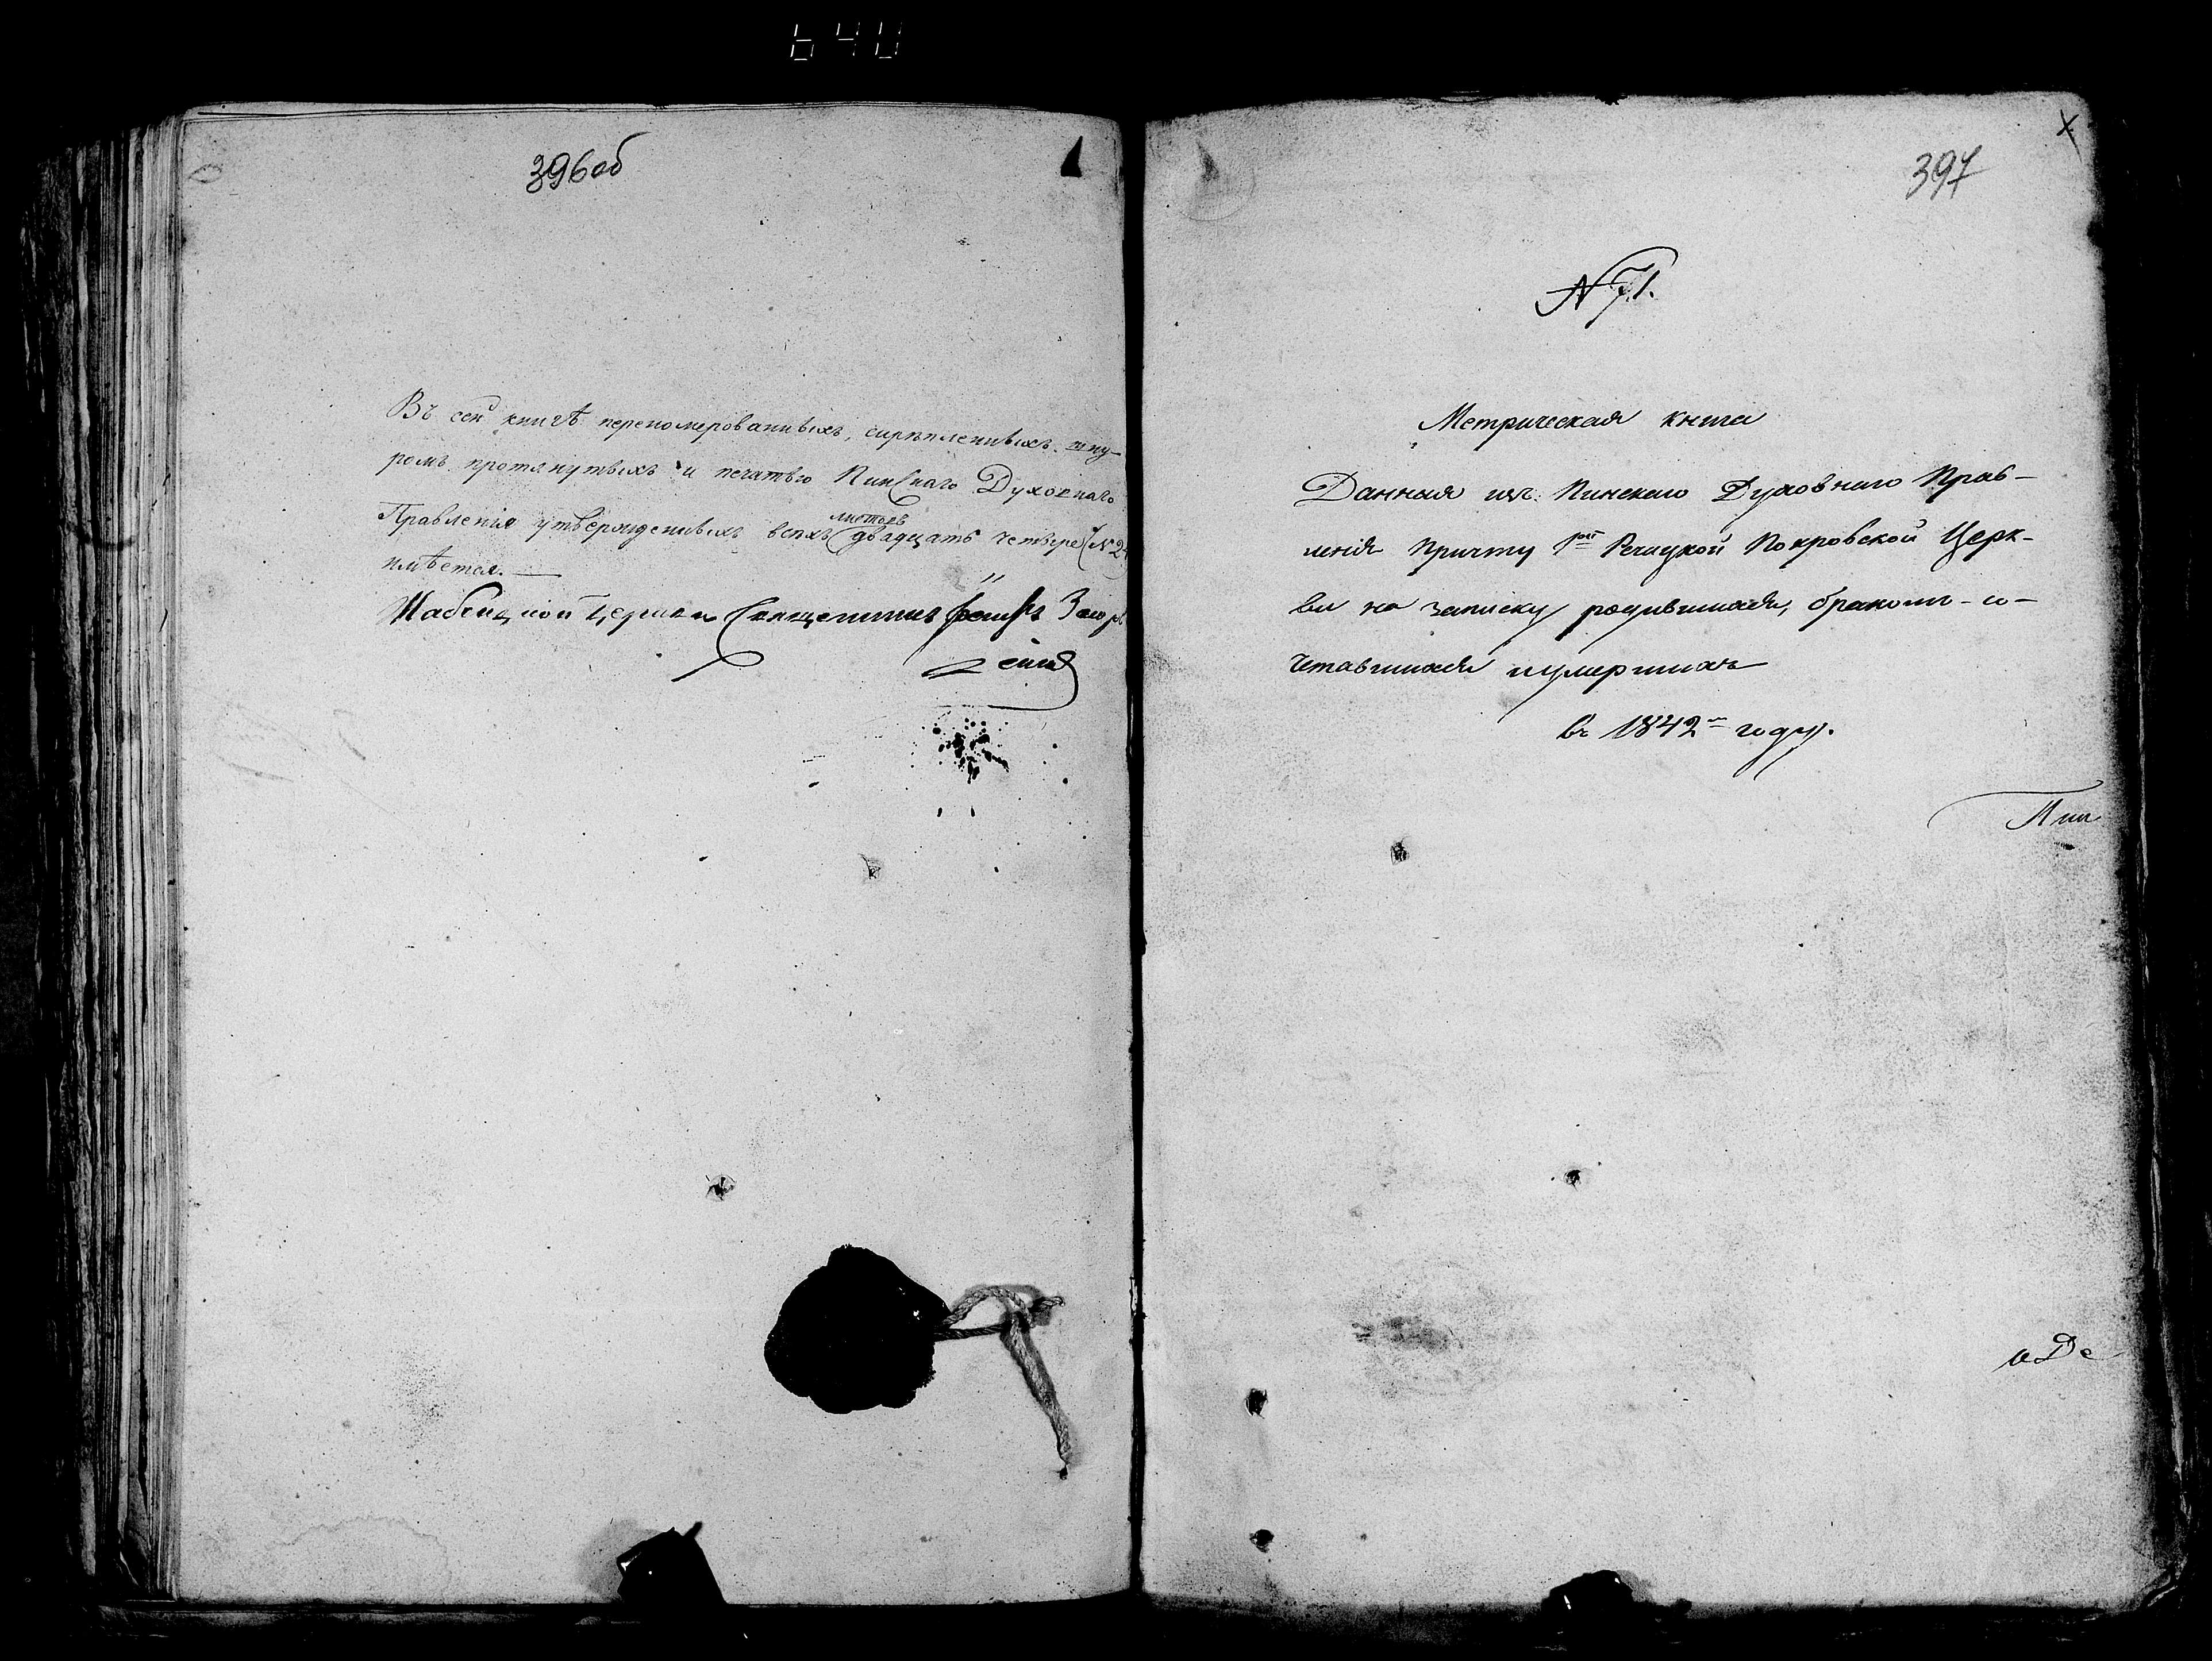 640
396об
Въ сей книгѣ переномерованныхъ, скрѣпленныхъ, шну-
ромъ протянутыхъ и печатью Пинскаго Духовнаго
Правленія утвержденныхъ всѣхъ листовъ двадцать четыре (N 24
имѣется.
Церкви Священникъ
397
N 71.
Метрическая книга
Данная изъ Пинскаго Духовнаго Прав-
ленія Причту 1ой Речицкой Покровской Церк-
ви на записку родившихся, бракомъ-со-
четавшихся и умершихъ
въ 1842м году.
Пин